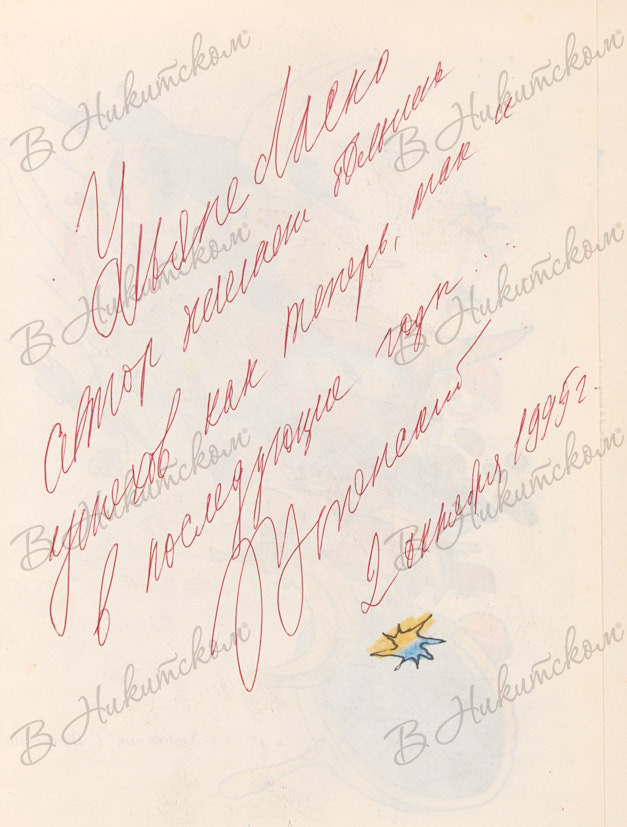 Ульяне Ляско
автор желает больших
успехов как теперь, так и
в последующие годы.
Успенский
2 октября 1995 г.
В Никитском®
В Никитском®
В Никитском®
В Никитском®
В Никитском®
В Никитском®
В Никитском®
В Никитском®